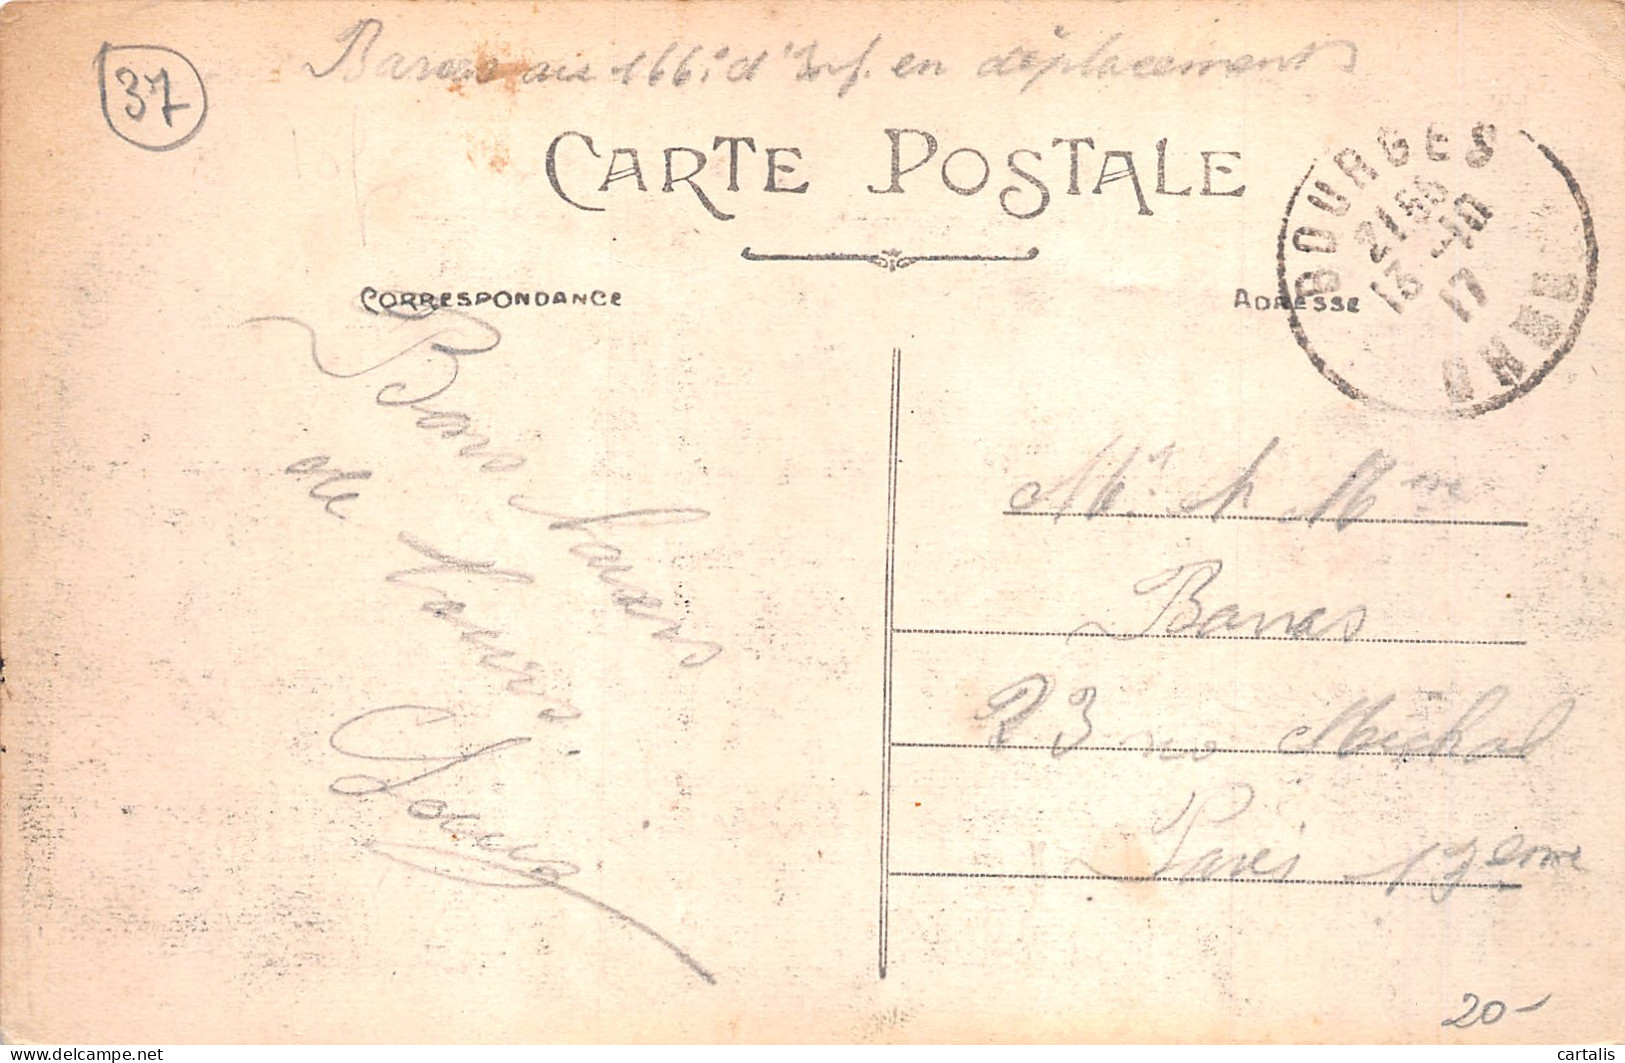 37
Barras au 166e d'Inf. en déplacement
CARTE POSTALE
CORRESPONDANCE
ADRESSE
BOURGES
21 55
13-10
17
CHER
Bons baisers
de Tours.
Louis
Mr. & Mme
Barras
23 rue Michal
Paris 13eme
20-
cartalis
delcampe.net